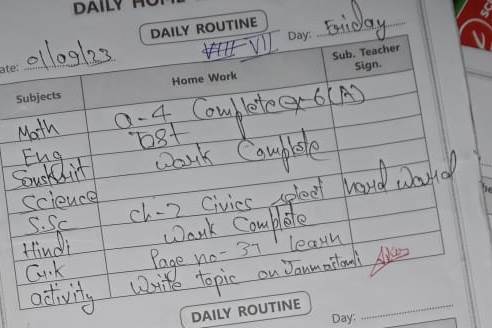 DAILY
DAILY ROUTINE
ate: 01/09/23 VII Day: Friday
Subjects Home Work Sub. Teacher Sign.
Math Q-4 Complete Ex 6(A)
Eng Test
Suskkrit Work Complete
Science
S.Sc Ch-2 Civics select hard word
Hindi Work Complete
G.K Page no-37 learn
activity Write topic on Janmastami
DAILY ROUTINE
Day: